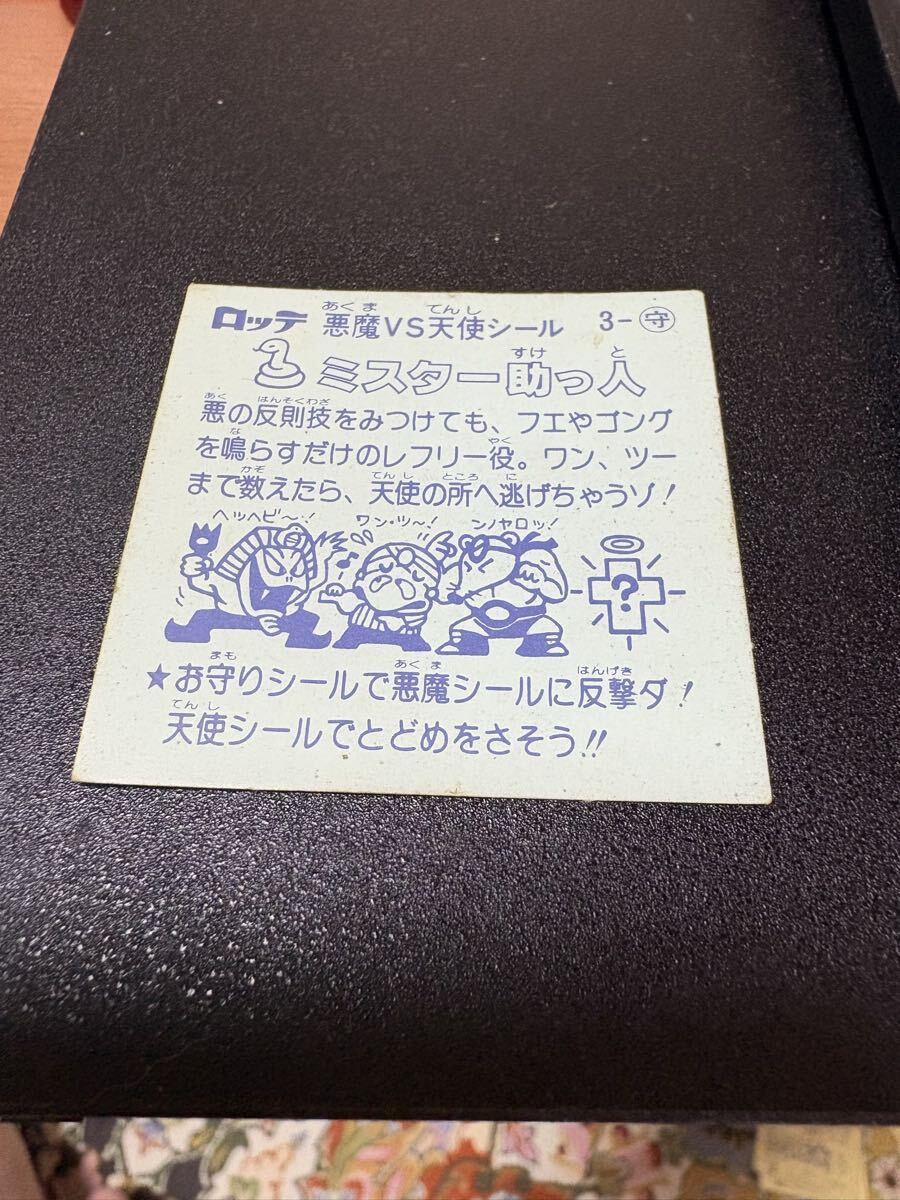 ロッテ 悪魔VS天使シール 3-守
ミスター助っ人
悪の反則技をみつけても、フエやゴング
を鳴らすだけのレフリー役。ワン、ツー
まで数えたら、天使の所へ逃げちゃうゾ!
ヘッヘビ〜! ワン・ツ〜! ンノヤロッ!
?
★お守りシールで悪魔シールに反撃ダ!
天使シールでとどめをさそう!!